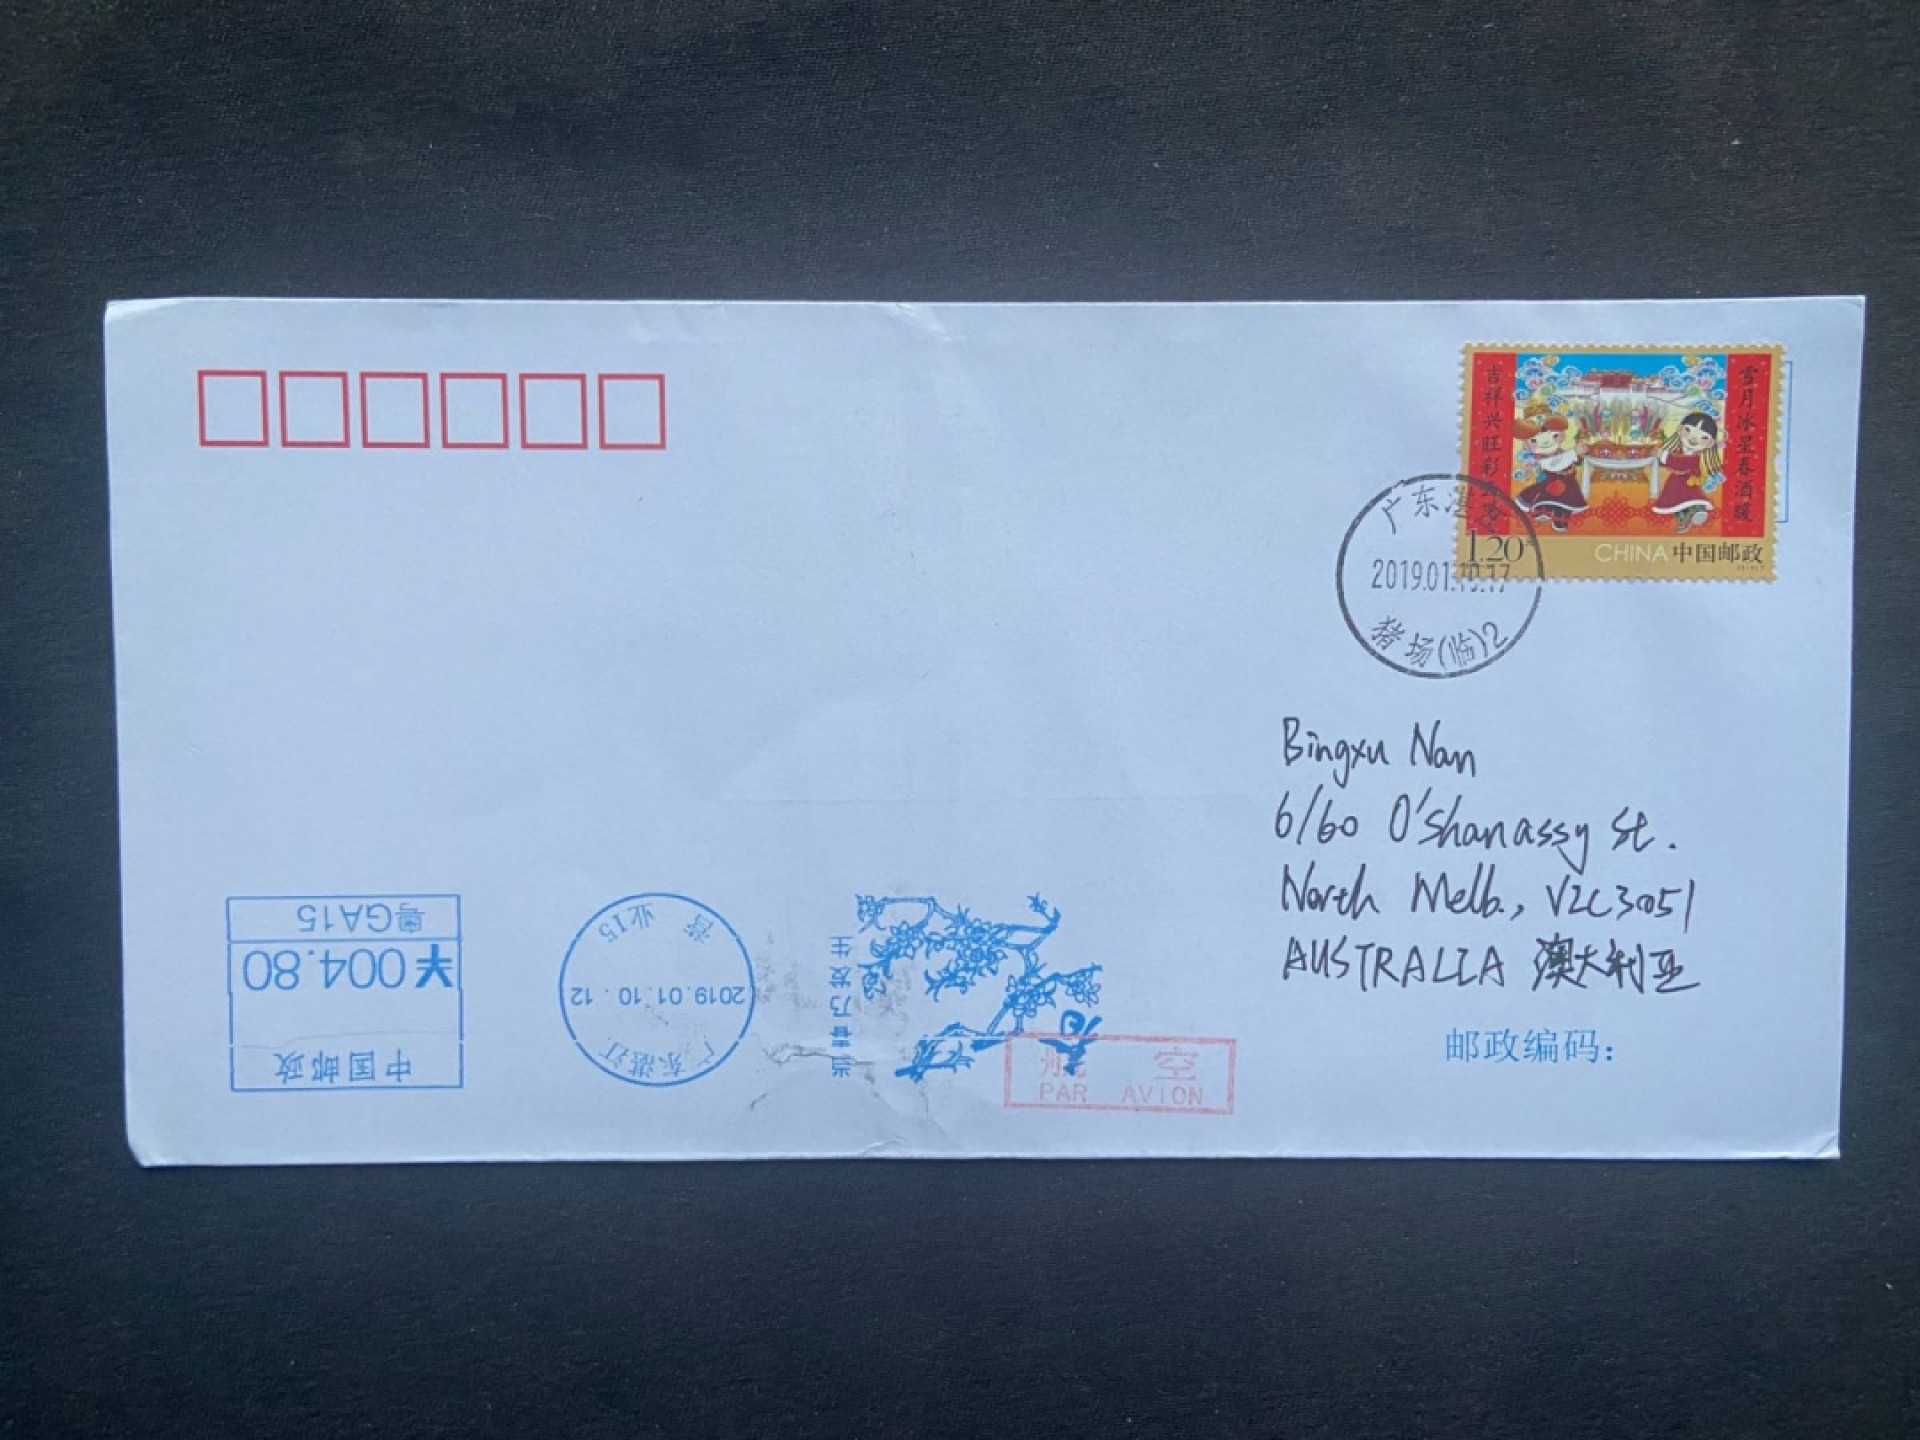 吉祥兴旺彩
雪月冰星春酒暖
1.20
CHINA 中国邮政
广东湛
2019.01.10.17
猪场(临)2
Bingxu Nan
6/60 O'Shanassy St.
North Melb., VIC3051
AUSTRALIA 澳大利亚
邮政编码:
粤GA15
¥004.80
中国邮政
营业15
2019.01.10.12
广东湛江
当春乃发生
航空
PAR AVION